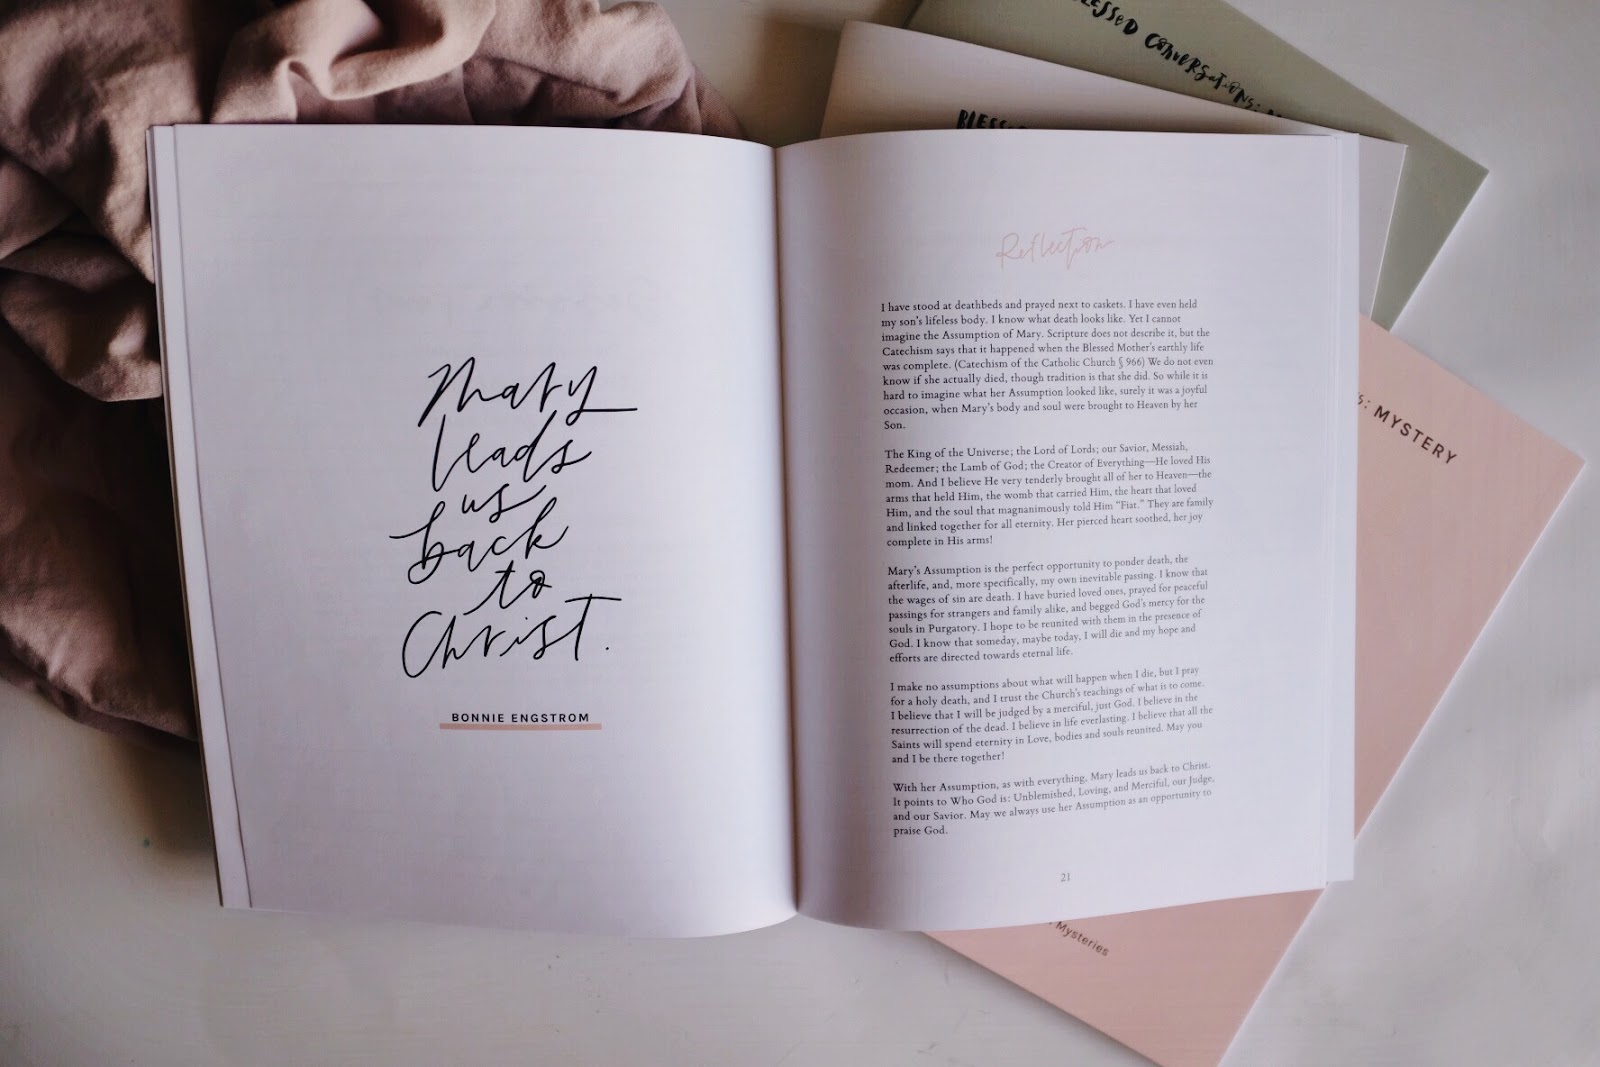 BLESSED CONVERSATIONS:
: MYSTERY
Mysteries
Mary
leads
us
back
to
Christ.
BONNIE ENGSTROM
Reflection
I have stood at deathbeds and prayed next to caskets. I have even held
my son's lifeless body. I know what death looks like. Yet I cannot
imagine the Assumption of Mary. Scripture does not describe it, but the
Catechism says that it happened when the Blessed Mother's earthly life
was complete. (Catechism of the Catholic Church § 966) We do not even
know if she actually died, though tradition is that she did. So while it is
hard to imagine what her Assumption looked like, surely it was a joyful
occasion, when Mary's body and soul were brought to Heaven by her
Son.
The King of the Universe; the Lord of Lords; our Savior, Messiah,
Redeemer; the Lamb of God; the Creator of Everything—He loved His
mom. And I believe He very tenderly brought all of her to Heaven—the
arms that held Him, the womb that carried Him, the heart that loved
Him, and the soul that magnanimously told Him "Fiat." They are family
and linked together for all eternity. Her pierced heart soothed, her joy
complete in His arms!
Mary's Assumption is the perfect opportunity to ponder death, the
afterlife, and, more specifically, my own inevitable passing. I know that
the wages of sin are death. I have buried loved ones, prayed for peaceful
passings for strangers and family alike, and begged God's mercy for the
souls in Purgatory. I hope to be reunited with them in the presence of
God. I know that someday, maybe today, I will die and my hope and
efforts are directed towards eternal life.
I make no assumptions about what will happen when I die, but I pray
for a holy death, and I trust the Church's teachings of what is to come.
I believe that I will be judged by a merciful, just God. I believe in the
resurrection of the dead. I believe in life everlasting. I believe that all the
Saints will spend eternity in Love, bodies and souls reunited. May you
and I be there together!
With her Assumption, as with everything, Mary leads us back to Christ.
It points to Who God is: Unblemished, Loving, and Merciful, our Judge,
and our Savior. May we always use her Assumption as an opportunity to
praise God.
21